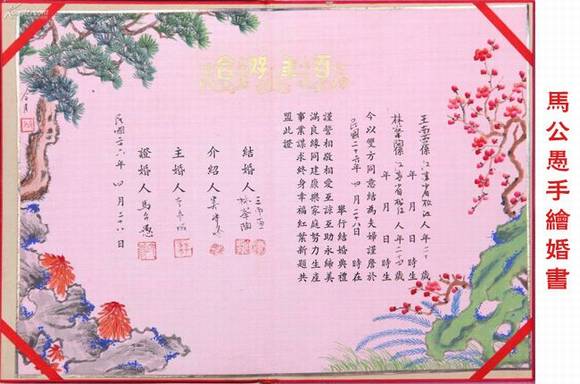 百年好合
王南 係江蘇省松江人年二十 歲
年 月 日 時生
林 陶係江蘇省松江人年二十四歲
年 月 日 時生
今以雙方同意結為夫婦謹詹於
民國二十六年 四月二十八日 時在
舉行結婚典禮
謹誓相敬相愛互諒互助永締美
滿良緣同建康樂家庭努力生產
事業謀求終身幸福紅葉新題共
盟此證
結婚人 王南 林 陶
介紹人
主婚人
證婚人 馬公愚
民國二六年 四月 二十八日
馬公愚手繪婚書